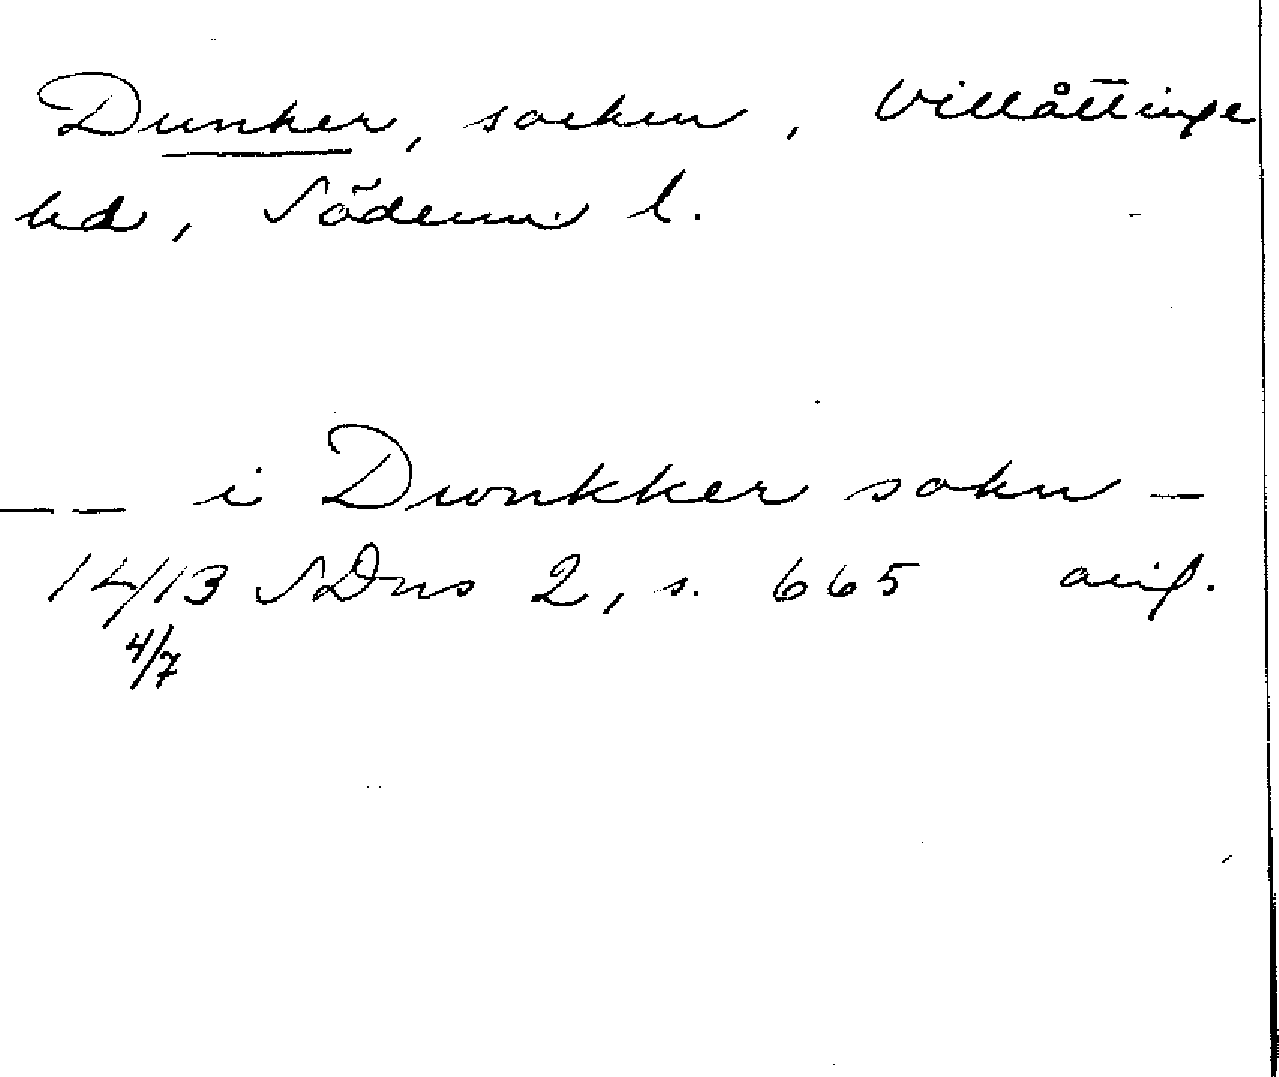 Dunker, socken, Villåttinge
hd, Söderm. l.
-- i Dwnkker sokn -
14/13 SDns 2, s. 665 orig.
4/7